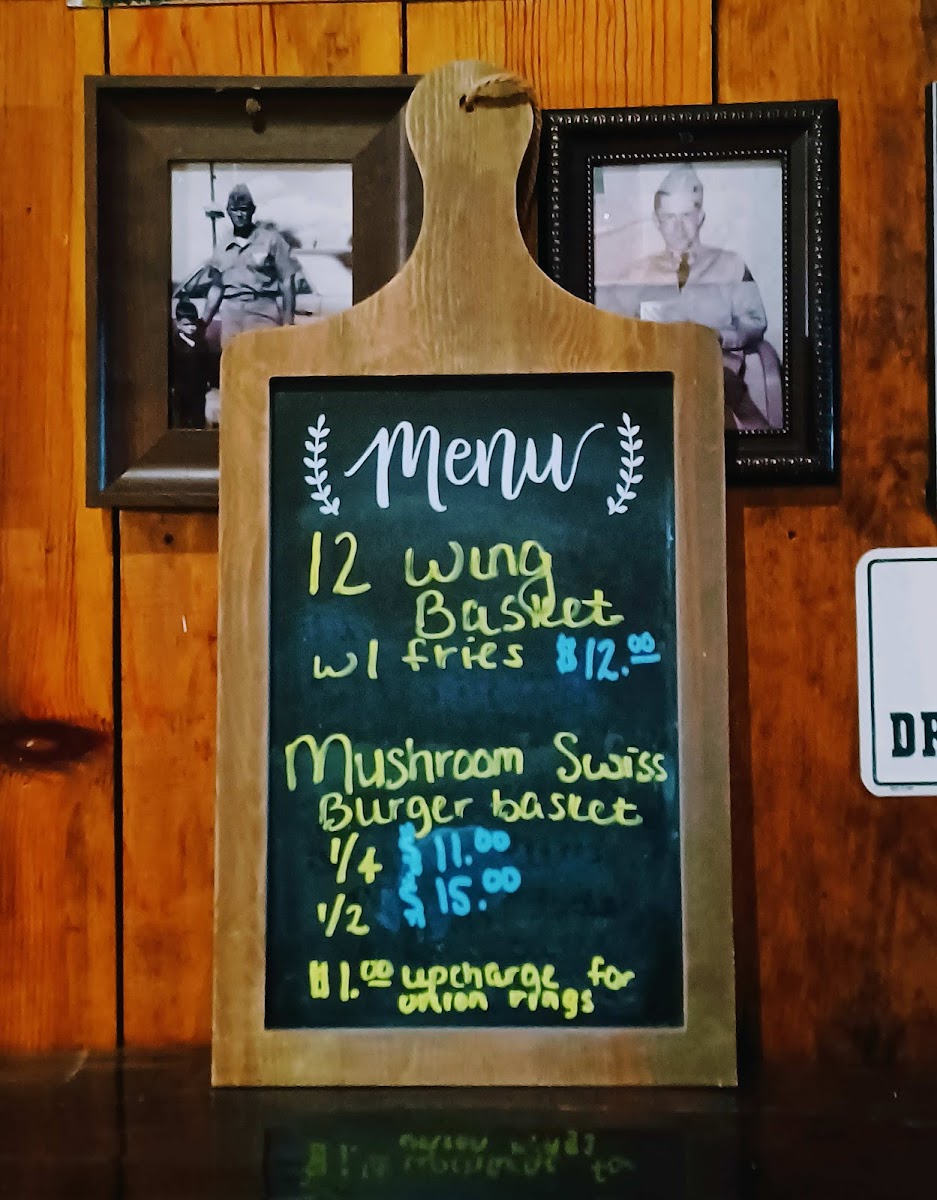 Menu
12 Wing
Basket
w/ fries $12.00
Mushroom Swiss
Burger basket
1/4 $11.00
1/2 $15.00
$1.00 upcharge for
onion rings